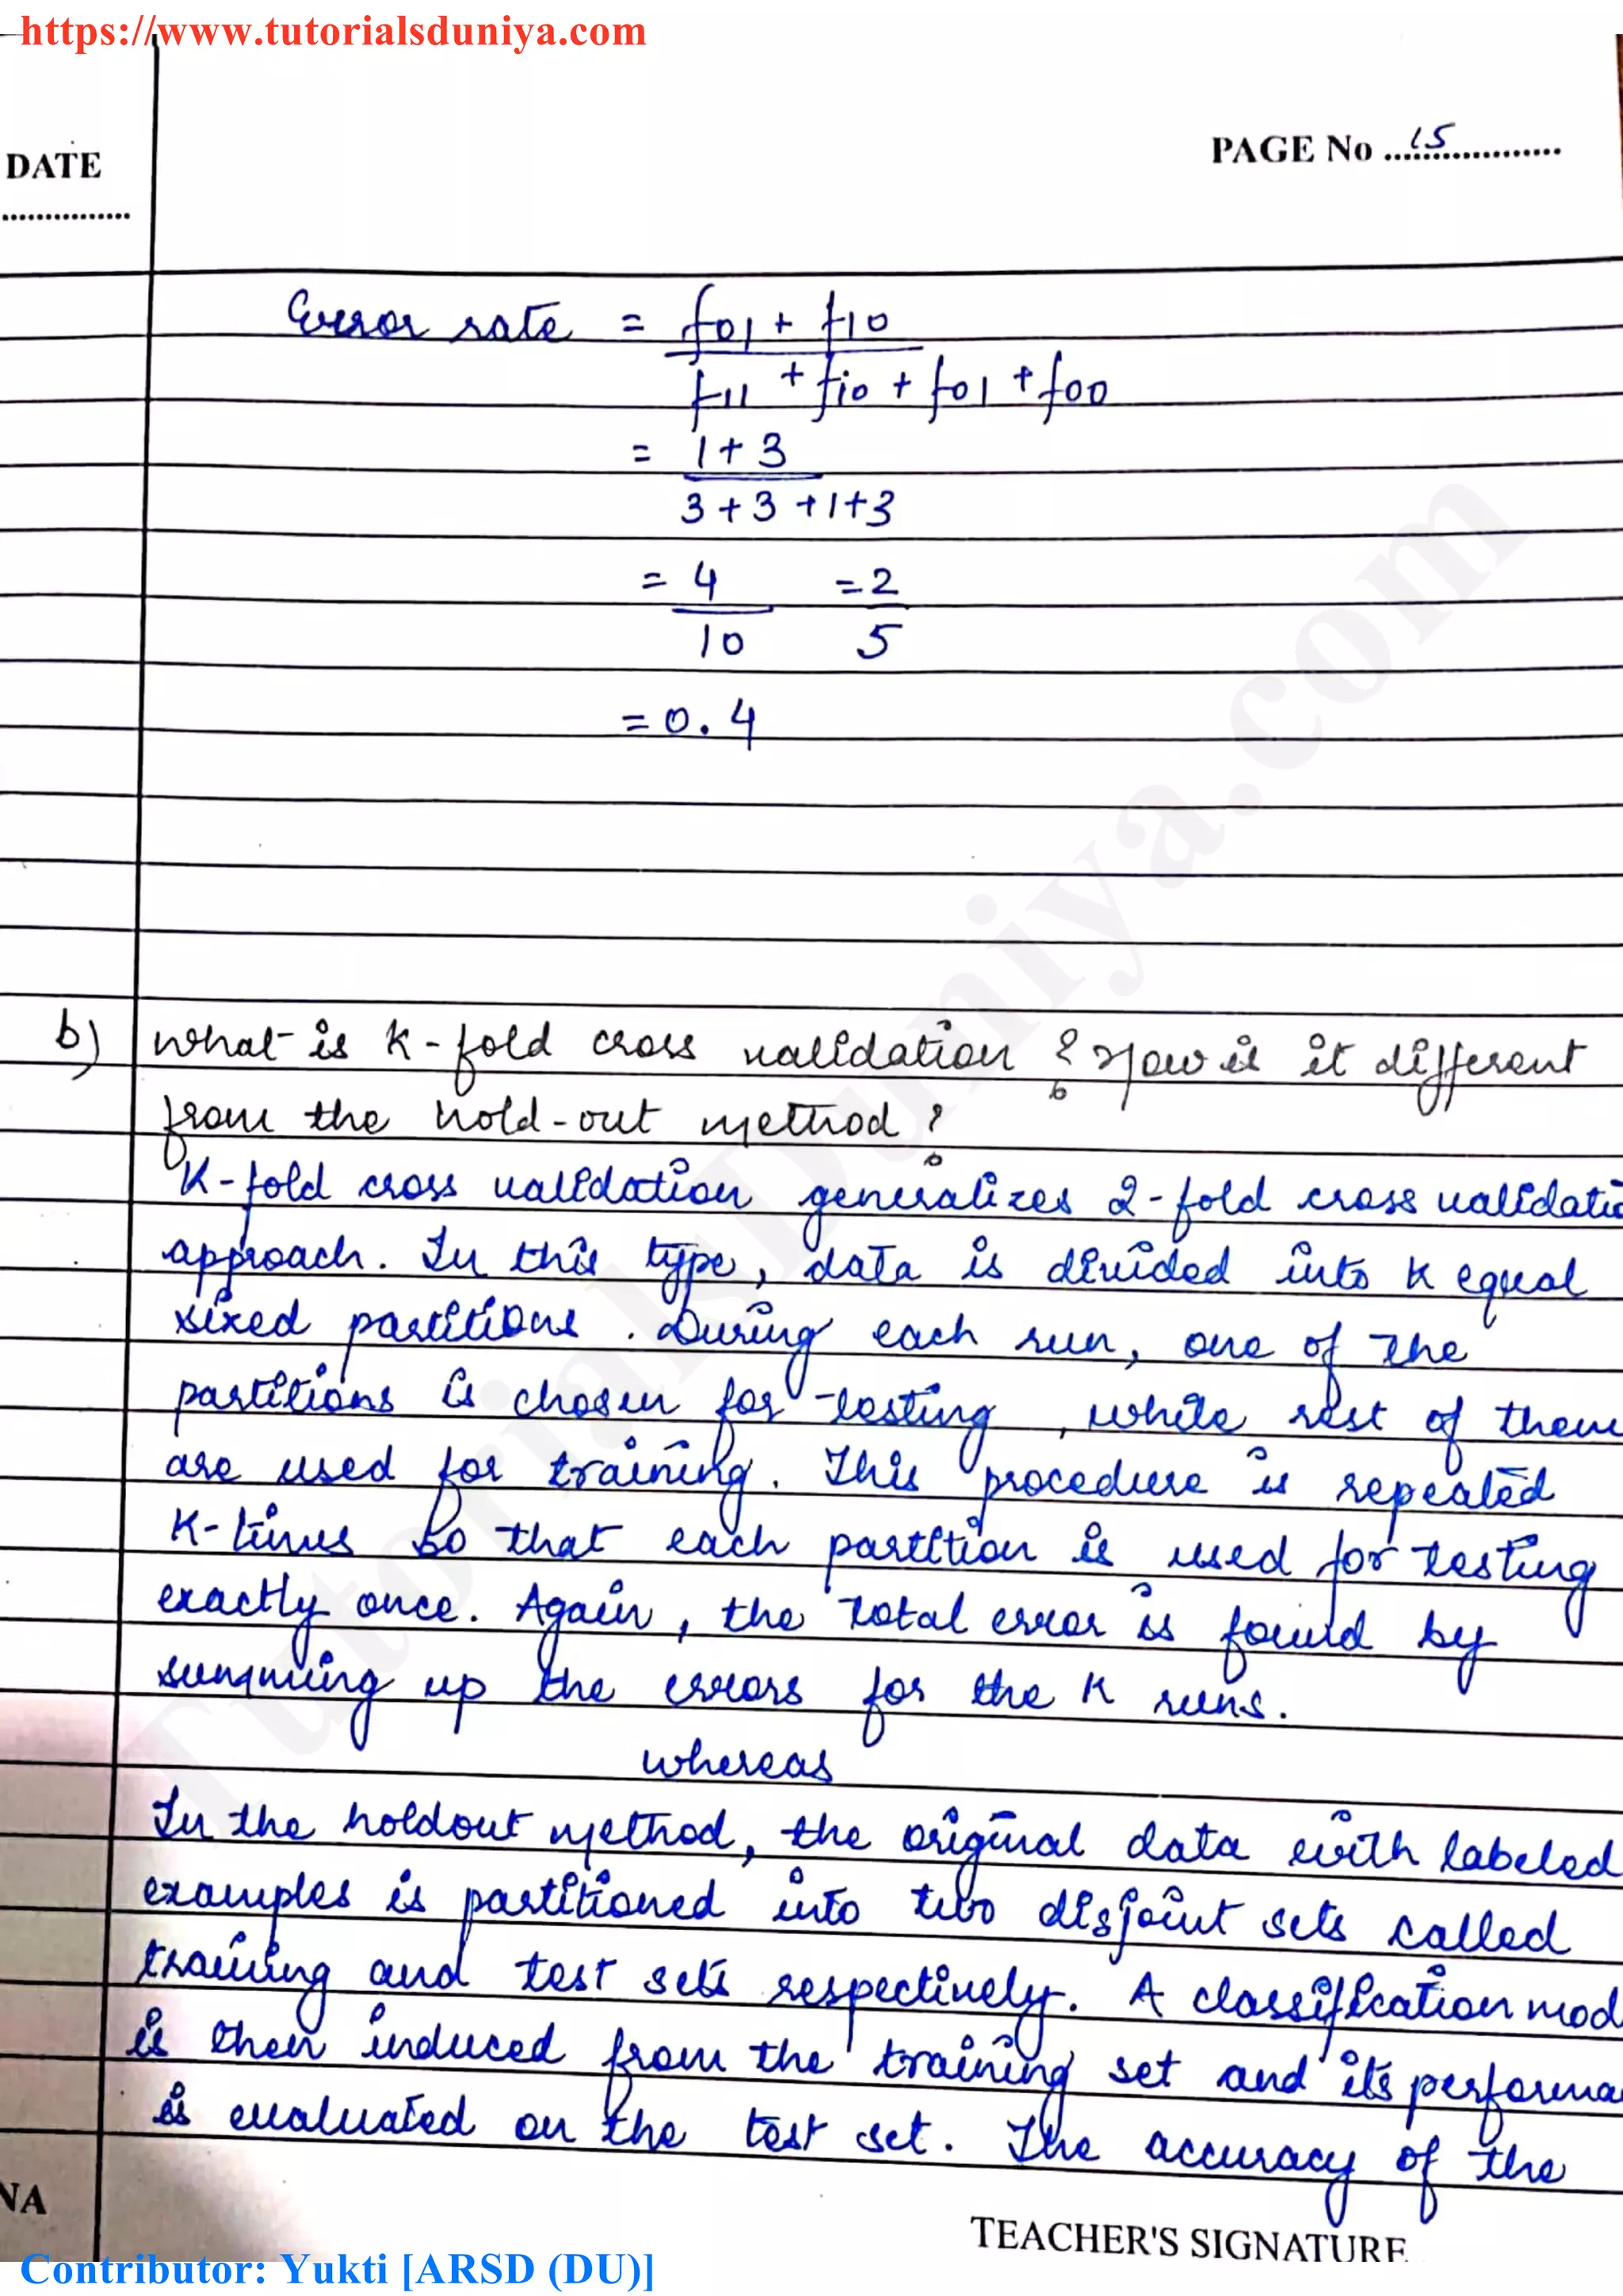 https://www.tutorialsduniya.com
PAGE No 15
DATE
Error rate = f01 + f10
f11 + f10 + f01 + f00
= 1 + 3
3 + 3 + 1 + 3
= 4 = 2
10 5
= 0.4
b) What is K-fold cross validation ? How is it different
from the hold-out method ?
K-fold cross validation generalizes 2-fold cross validatio
approach. In this type, data is divided into K equal
sized partitions. During each run, one of the
partitions is chosen for testing, while rest of them
are used for training. This procedure is repeated
K-times so that each partition is used for testing
exactly once. Again, the total error is found by
summing up the errors for the K runs.
whereas
In the holdout method, the original data with labeled
examples is partitioned into two disjoint sets called
training and test sets respectively. A classification mod
is then induced from the training set and its performa
is evaluated on the test set. The accuracy of the
NA
TEACHER'S SIGNATURE
Contributor: Yukti [ARSD (DU)]
TutorialsDuniya.com